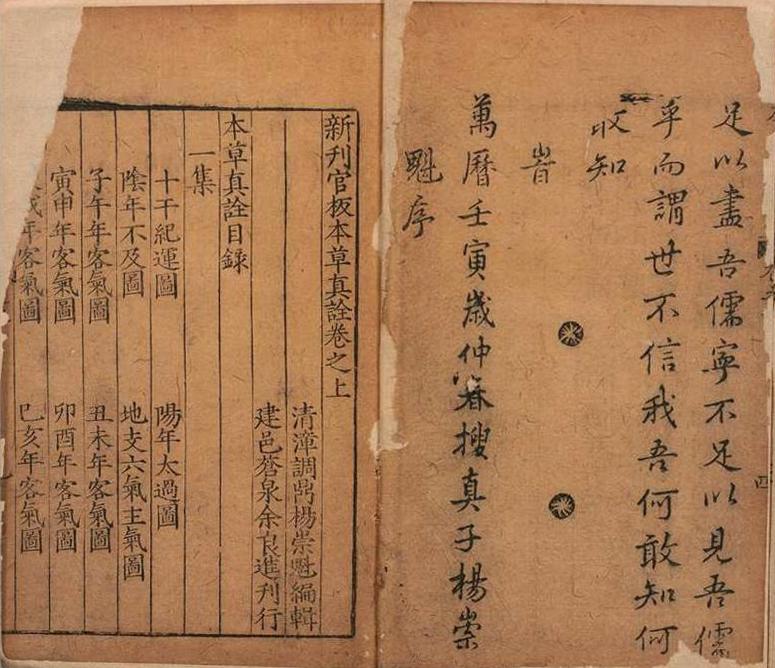 足以盡吾儒寧不足以見吾儒
乎而謂世不信我吾何敢知何
敢知
旹
萬曆壬寅歲仲春搜真子楊崇
魁序
四
新刊官板本草真詮卷之上
清漳調鼎楊崇魁編輯
建邑蒼泉余良進刊行
本草真詮目錄
一集
十干紀運圖 陽年太過圖
陰年不及圖 地支六氣主氣圖
子午年客氣圖 丑未年客氣圖
寅申年客氣圖 卯酉年客氣圖
戌年客氣圖 巳亥年客氣圖